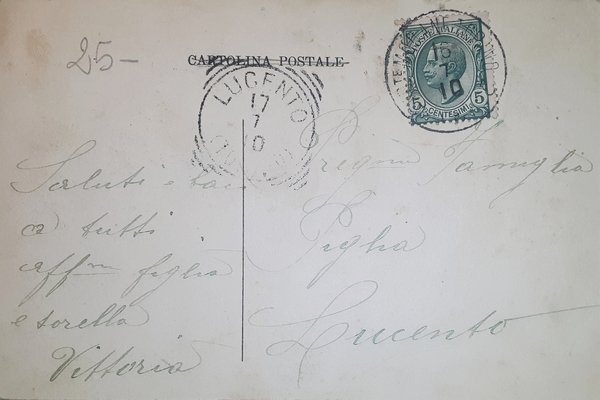 25-
CARTOLINA POSTALE
LUCENTO
17
7
10
POSTE ITALIANE
16
7
10
5 CENTESIMI 5
Saluti e baci
a tutti
aff.ma figlia
e sorella
Vittoria
Famiglia
Piglia
Lucento